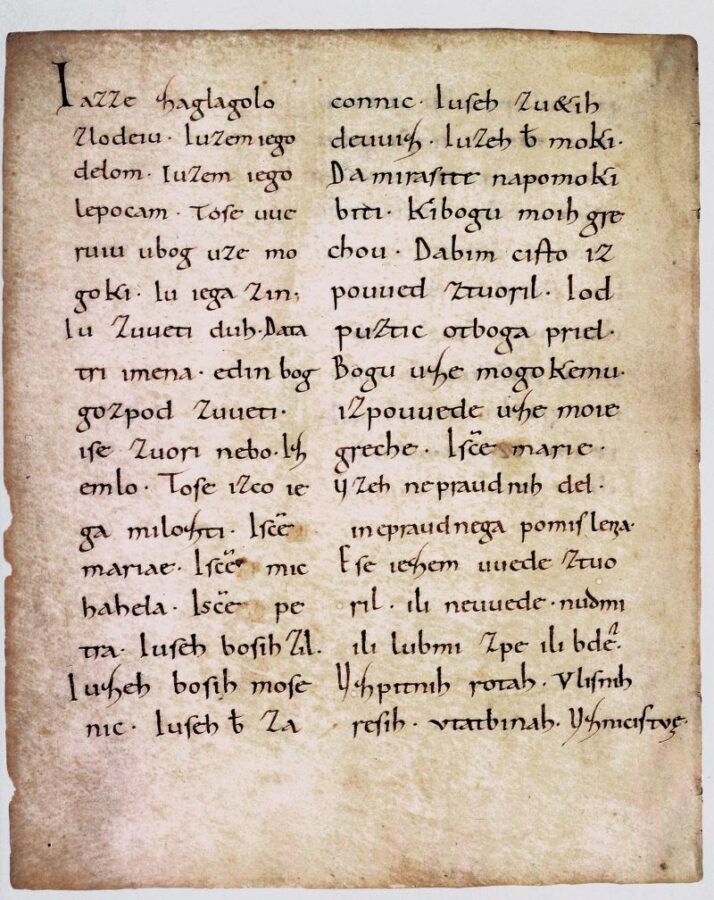 Iazze zaglagolo
zlodeiu · Iuzem iego
delom · Iuzem iego
lepocam · Tose uue
ruiu ubog uze mo
goki · Iu iega zin,
Iu zuueti duh · Data
tri imena · edin bog
gozpod zuueti ·
ise zuori nebo · Iz
emlo · Tose izco ie
ga milozti · Iscē
mariae · Iscē mic
hahela · Iscē pe
tra · Iuseh bosih zil.
Iuzeh bosih mose
nic · Iuseh b̄ za
connic · Iuseh zu&ih
deuuiz · Iuzeh b̄ moki ·
Da mirasite napomoki
biti · Kibogu moih gre
chou · Dabim cisto iz
pouued ztuoril · Iod
puztic otboga priel ·
Bogu uze mogokemu ·
izpouuede uze moie
greche · Iscē marie ·
Vzeh nepraudnih del ·
inepraudnega pomislena ·
Ese iezem uuede ztuo
ril · ili neuuede · nudmi
ili lubmi zpe ili bdē ·
Vzpitnih rotah · Vlisnih
resih · vtatbinah · Vznicistvę ·